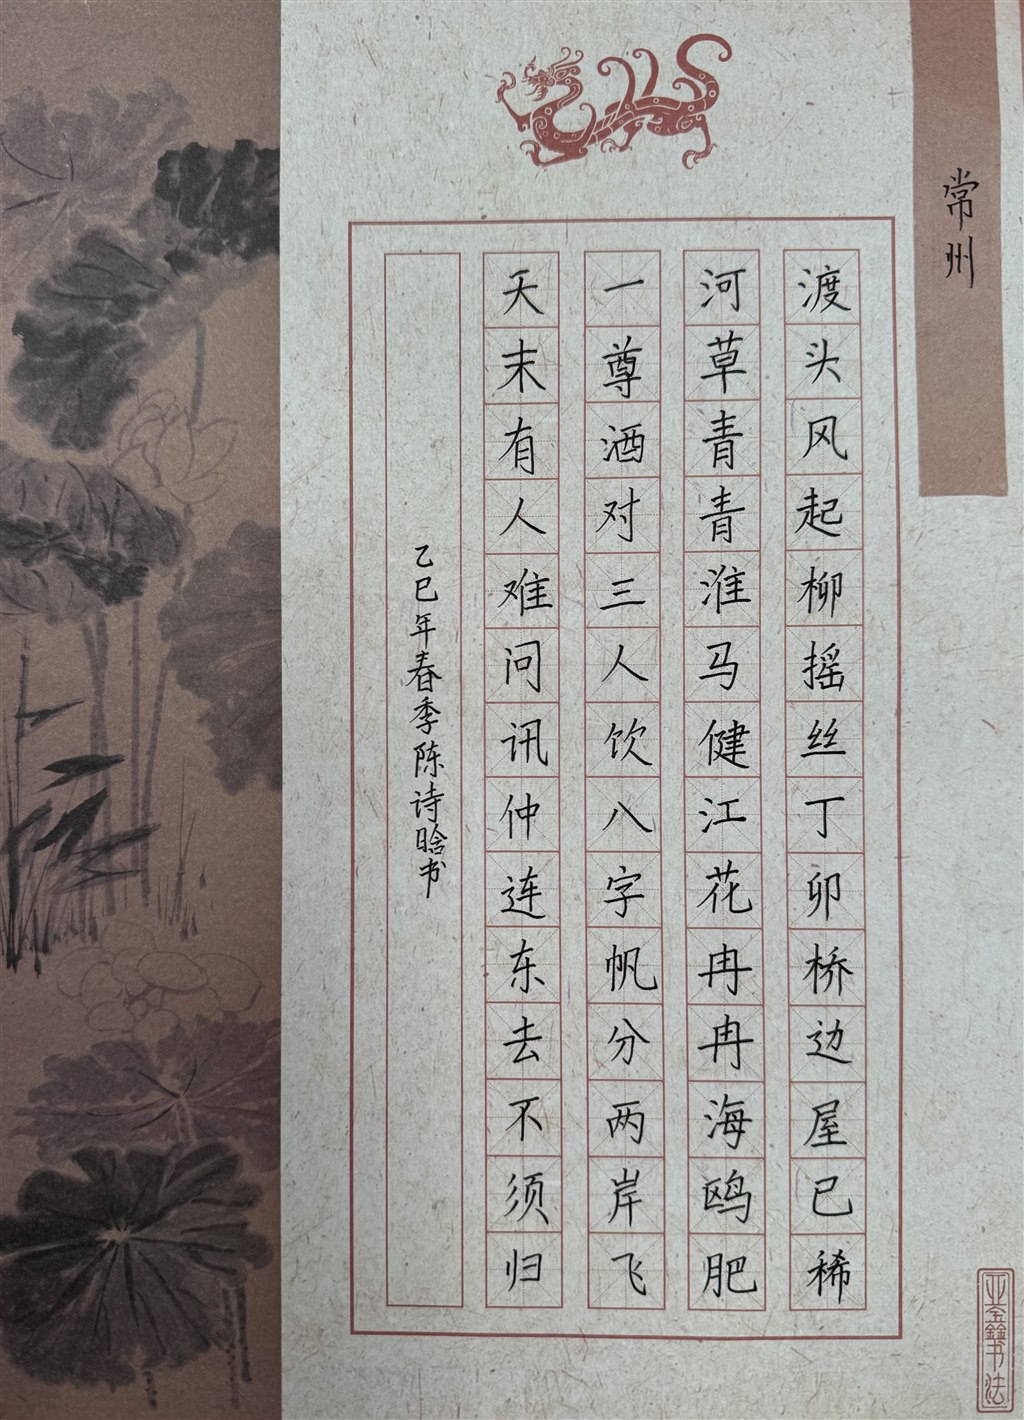 常州
渡头风起柳摇丝丁卯桥边屋已稀
河草青青淮马健江花冉冉海鸥肥
一尊酒对三人饮八字帆分两岸飞
天末有人难问讯仲连东去不须归
乙巳年春季陈诗晗书
书法